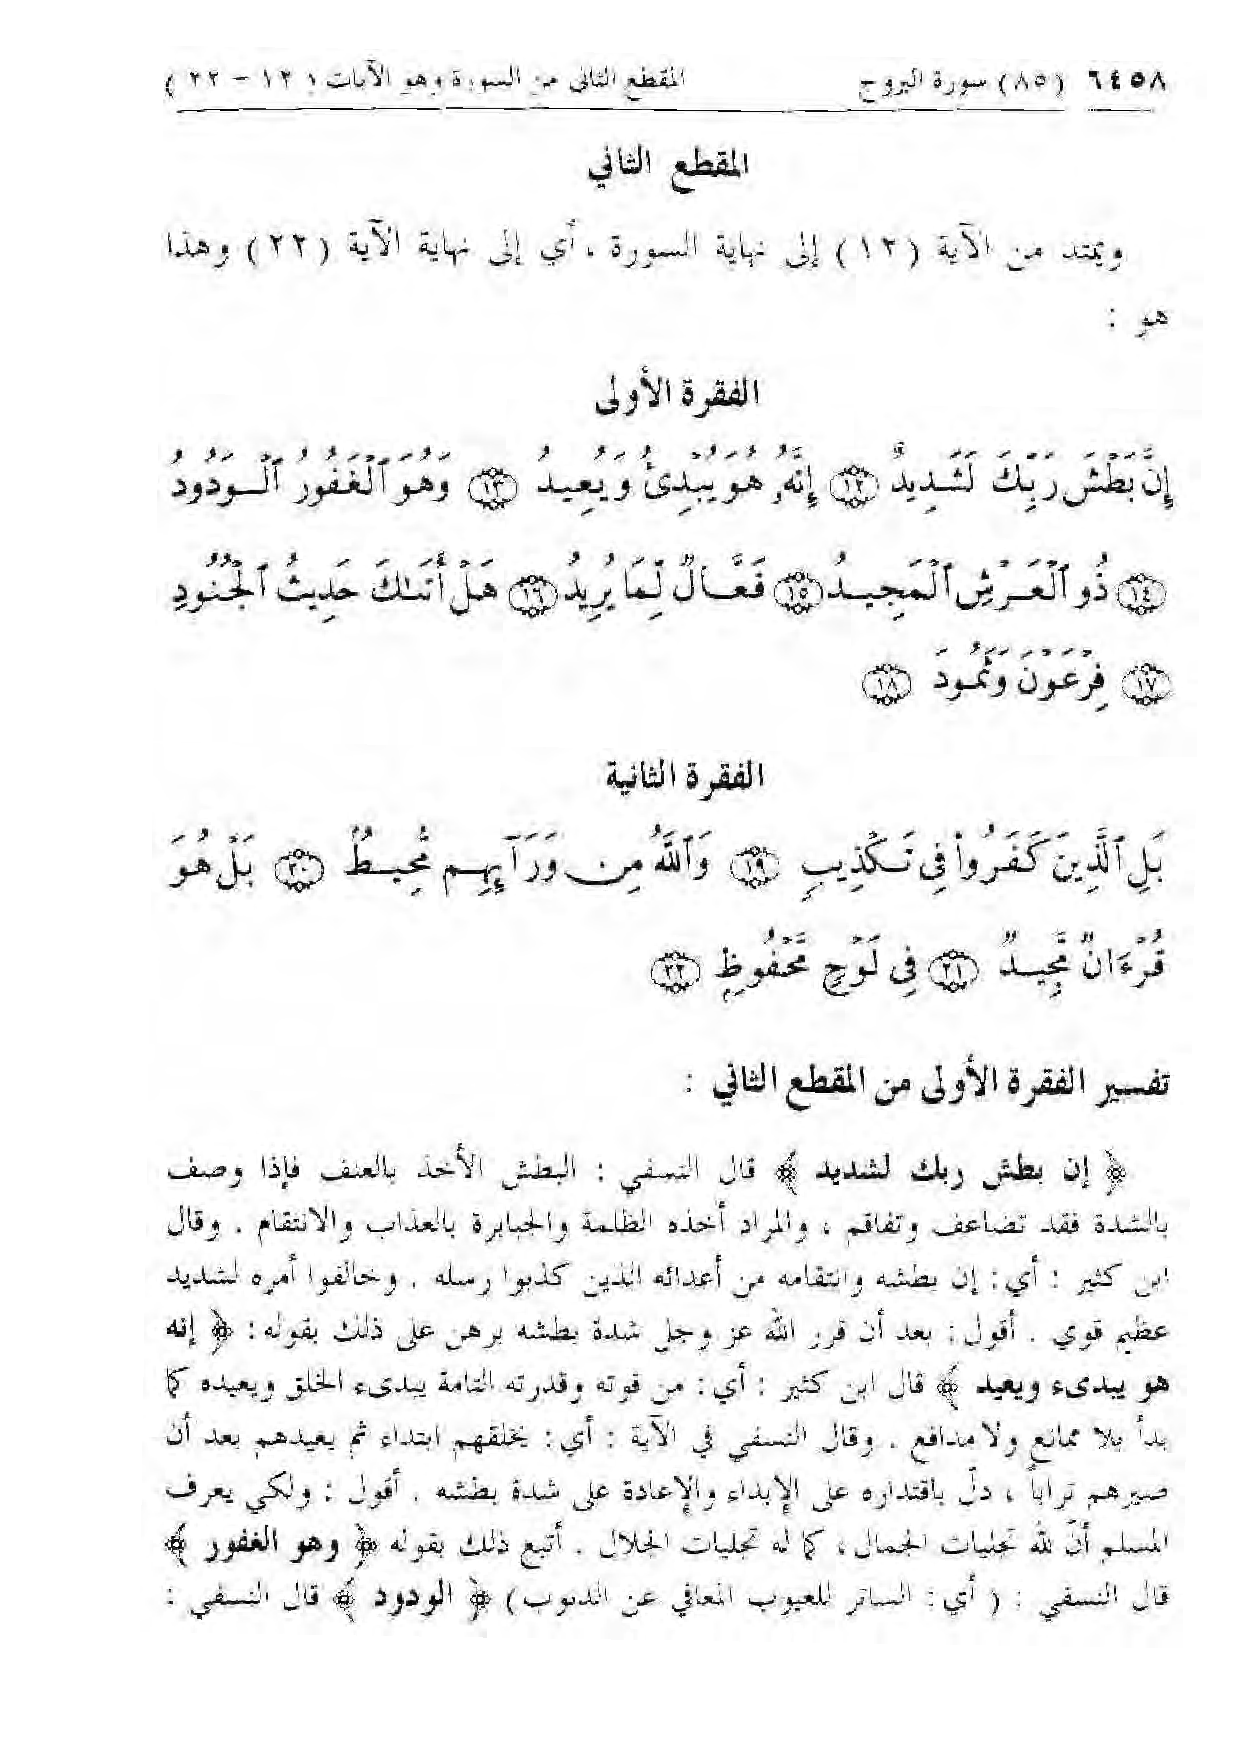 ٦٤٥٨ (٨٥) سورة البروج المقطع الثاني من السورة وهو الآيات (١٢ – ٢٢)
المقطع الثاني
ويمتد من الآية (١٢) إلى نهاية السورة ، أي إلى نهاية الآية (٢٢) وهذا
هو :
الفقرة الأولى
إِنَّ بَطْشَ رَبِّكَ لَشَدِيدٌ ١٢ إِنَّهُۥ هُوَ يُبْدِئُ وَيُعِيدُ ١٣ وَهُوَ ٱلْغَفُورُ ٱلْوَدُودُ
١٤ ذُو ٱلْعَرْشِ ٱلْمَجِيدُ ١٥ فَعَّالٌ لِّمَا يُرِيدُ ١٦ هَلْ أَتَىٰكَ حَدِيثُ ٱلْجُنُودِ
١٧ فِرْعَوْنَ وَثَمُودَ ١٨
الفقرة الثانية
بَلِ ٱلَّذِينَ كَفَرُوا۟ فِى تَكْذِيبٍ ١٩ وَٱللَّهُ مِن وَرَآئِهِم مُّحِيطٌ ٢٠ بَلْ هُوَ
قُرْءَانٌ مَّجِيدٌ ٢١ فِى لَوْحٍ مَّحْفُوظٍ ٢٢
تفسير الفقرة الأولى من المقطع الثاني :
﴿ إن بطش ربك لشديد ﴾ قال النسفي : البطش الأخذ بالعنف فإذا وصف
بالشدة فقد تضاعف وتفاقم ، والمراد أخذه الظلمة والجبابرة بالعذاب والانتقام . وقال
ابن كثير : أي : إن بطشه وانتقامه من أعدائه الذين كذبوا رسله . وخالفوا أمره لشديد
عظيم قوي . أقول : بعد أن قرر الله عز وجل شدة بطشه برهن على ذلك بقوله : ﴿ إنه
هو يبدىء ويعيد ﴾ قال ابن كثير : أي : من قوته وقدرته التامة يبدىء الخلق ويعيده كما
بدأ بلا ممانع ولا مدافع . وقال النسفي في الآية : أي : يخلقهم ابتداء ثم يعيدهم بعد أن
صيرهم تراباً ، دلّ باقتداره على الإبداء والإعادة على شدة بطشه . أقول : ولكي يعرف
المسلم أنّ لله تجليات الجمال ، كما له تجليات الجلال . أتبع ذلك بقوله ﴿ وهو الغفور ﴾
قال النسفي : ( أي : الساتر للعيوب المعافي عن الذنوب ) ﴿ الودود ﴾ قال النسفي :